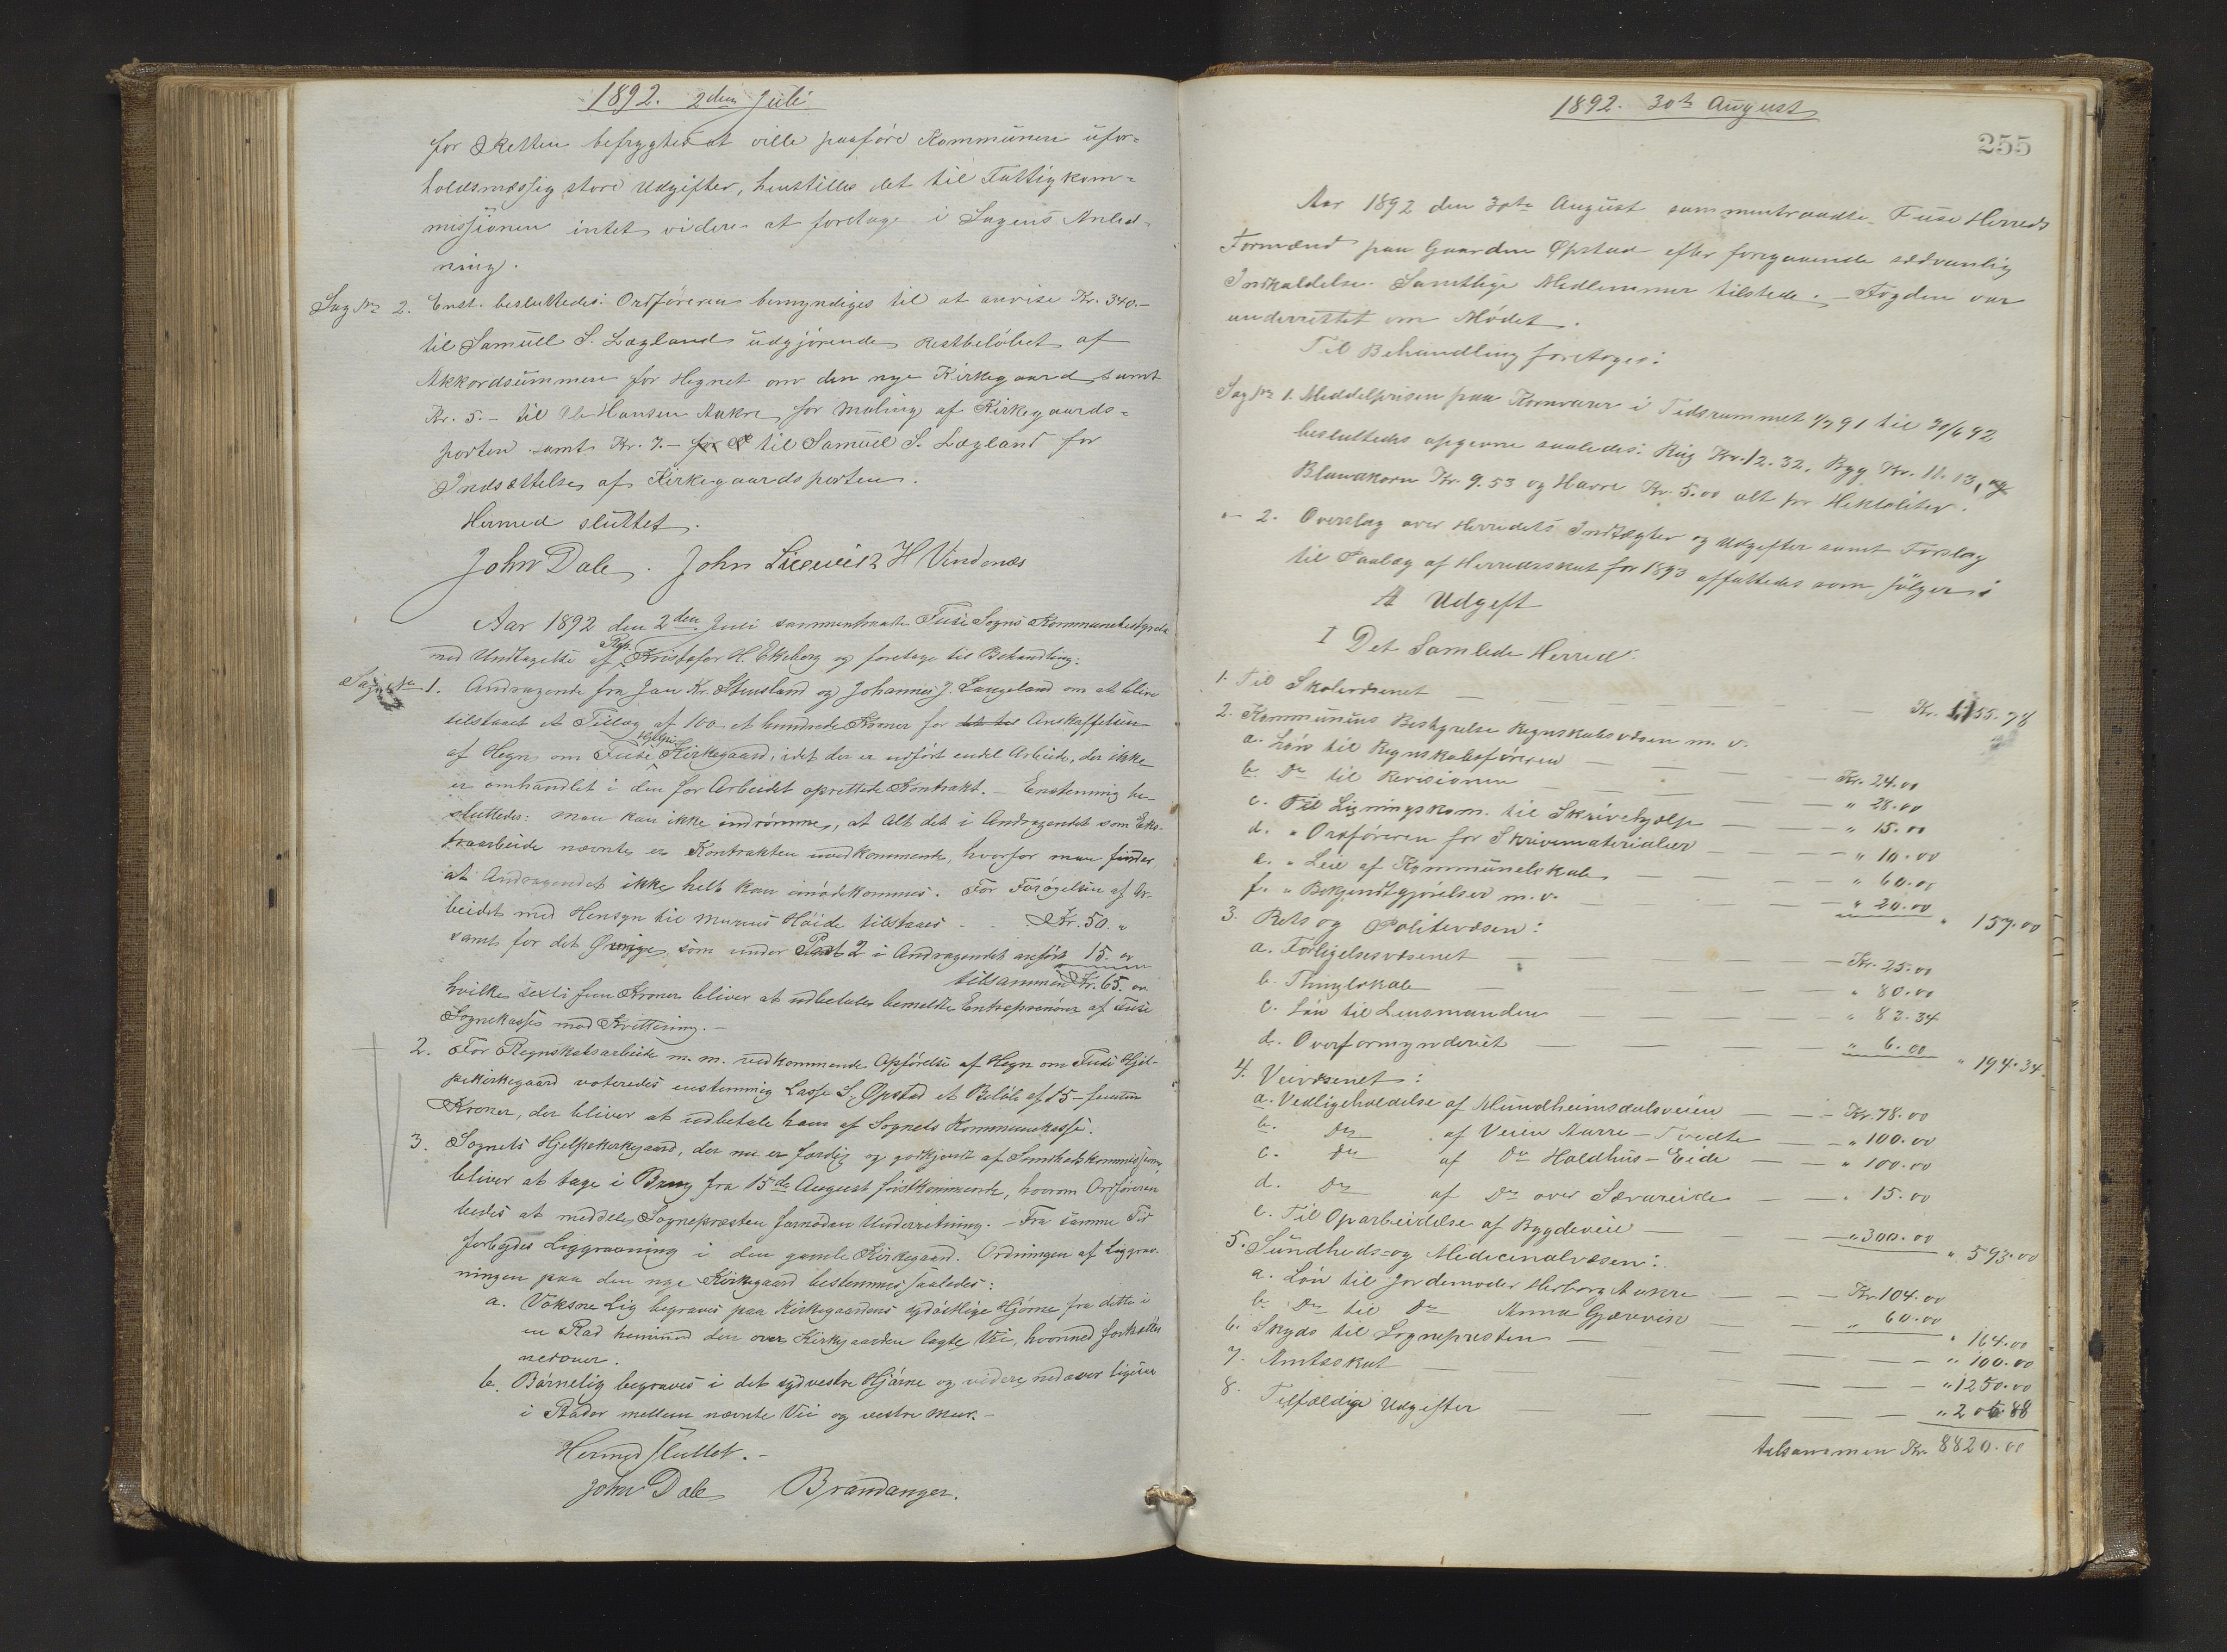 1892. 2den Juli
for Retten befrygtes at ville paaføre Kommunen ufor-
holdsmæssig store Udgifter, henstilles det til Fattigkom-
missionen intet videre at foretage i Sagens Anled-
ning.
Sag No 2. Enst. besluttedes: Ordføreren bemyndiges til at anvise Kr. 340.-
til Samuel S. Lægland udgjørende Restbeløbet af
Akkordsummen for Hegnet om den nye Kirkegaard samt
Kr. 5.- til Ole Hansen Aakre for Maling af Kirkegaards-
porten samt Kr. 7.- for til Samuel S. Lægland for
Indsættelse af Kirkegaardsporten.
Hermed sluttet.
John Dale. John H Vindenæs
Aar 1892 den 2den Juli sammentraadte Fuse Sogns Kommunebestyrelse
med Undtagelse af Rep. Kristofer H. Ekeberg og foretoge til Behandling:
Sag No 1. Andragende fra Jan Kr. Stensland og Johannes J. Langeland om at blive
tilstaaet et Tillæg af 100 et hundrede Kroner for Anskaffelsen
af Hegn om Fuse Hjelpe Kirkegaard, idet der er udført endel Arbeide, der ikke
er omhandlet i den for Arbeidet oprettede Kontrakt. - Enstemmig be-
sluttedes: Man kan ikke indrømme, at Alt det i Andragendet som Eks-
traarbeide nævnte er Kontrakten uvedkommende, hvorfor man finder
at Andragendet ikke helt kan imødekommes. For Forøgelsen af Ar-
beidet med Hensyn til Murens Høide tilstaaes - - Kr. 50. "
samt for det Øvrige, som under Post 2 i Andragendet anført 15. "
tilsammen Kr. 65. "
hvilke sexti fem Kroner bliver at udbetales bemeldte Entreprenører af Fuse
Sognekasse mod Kvittering. -
2. For Regnskabsarbeide m. m. vedkommende Opførelse af Hegn om Fuse Hjel-
pekirkegaard voteredes enstemmig Lasse S. Øpstad et Beløb af 15 - femten
Kroner, der bliver at udbetale ham af Sognets Kommunekasse.
3. Sognets Hjelpekirkegaard, der nu er færdig og godkjendt af Sundhedskommissionen,
bliver at tage i Brug fra 15de August førstkommende, hvorom Ordføreren
bedes at meddele Sognepræsten fornøden Underretning. - Fra samme Tid
forbydes Liggravning i den gamle Kirkegaard. Ordningen af Liggrav-
ningen paa den nye Kirkegaard bestemmes saaledes:
a. Voksne Lig begraves paa Kirkegaardens sydøstlige Hjørne fra dette i
en Rad henimod den over Kirkegaarden lagte Vei, hvormed fortsættes
nedover.
b. Børnelig begraves i det sydvestre Hjørne og videre nedover ligesaa
i Rader mellem nævnte Vei og vestre Mur. -
Hermed sluttet. -
John Dale Brandanger.
1892. 30te August
255
Aar 1892 den 30te August sammentraadte Fuse Herreds
Formænd paa Gaarden Øpstad efter foregaaende sædvanlig
Indkaldelse. Samtlige Medlemmer tilstede. - Fogden var
underrettet om Mødet.
Til Behandling foretoges:
Sag No 1. Middelprisen paa Kornvarer i Tidsrummet 1/7 91 til 30/6 92
besluttedes opgivne saaledes: Rug Kr. 12.32, Byg Kr. 11.13, og
Blandkorn Kr. 9.53 og Havre Kr. 5.00 alt pr Hektoliter.
" - 2. Overslag over Herredets Indtægter og Udgifter samt Forslag
til Paalæg af Herredsskat for 1893 affattedes som følger:
A Udgift
I Det Samlede Herred:
1. Til Skolevæsenet — — — Kr. 55.78
2. Kommunens Bestyrelse Regnskabsvæsen m. v.
a. Løn til Regnskabsføreren — — — Kr. 24.00
b. Do til Revisionen — — — " 28.00
c. Til Ligningskom. til Skrivehjælp — — " 15.00
d. " Ordføreren for Skrivematerialier — — " 10.00
e. " Leie af Kommunelokale — — — " 60.00
f. " Bekjendtgjørelser m. v. — — — " 20.00 " 157.00
3. Rets og Politivæsen:
a. Forligelsesvæsenet — — — Kr. 25.00
b. Thinglokale — — — " 80.00
c. Løn til Lensmanden — — — " 83.34
d. Overformynderiet — — — " 6.00 " 194.34
4. Veivæsenet:
a. Vedligeholdelse af Mundheimsdalsveien — — Kr. 78.00
b. Do af Veien Aarre - Tvedte — — " 100.00
c. Do af Do Holdhus - Eide — — " 100.00
d. Do af Do over Sævareide — — " 15.00
e. Til Oparbeidelse af Bygdeveie — — " 300.00 " 593.00
5. Sundheds- og Medicinalvæsen:
a. Løn til Jordemoder Herborg Aakre — — Kr. 104.00
b. Do til Do Anna Gjærevik — — " 60.00 " 164.00
6. Skyds til Sognepresten — — — " 100.00
7. Amtsskat — — — " 1250.00
8. Tilfældige Udgifter — — — " 205.88
tilsammen Kr. 8820.00